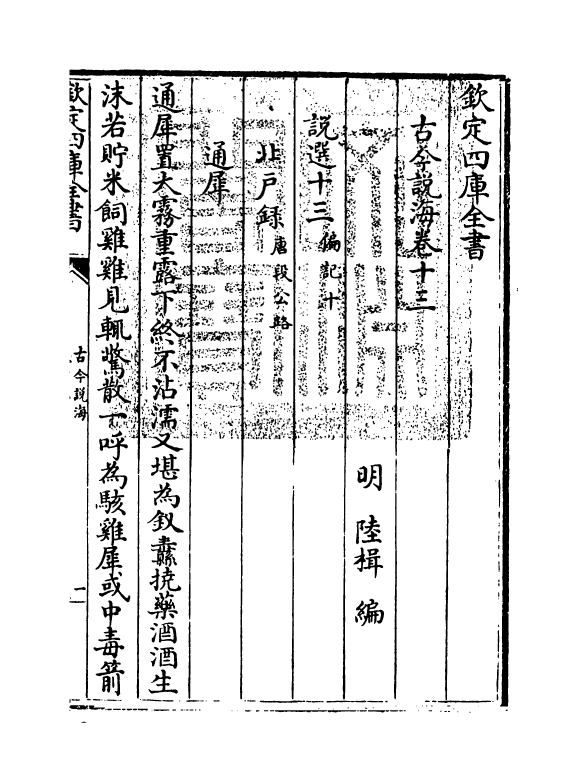 欽定四庫全書
古今說海卷十三
明 陸楫 編
說選十三 偏記十
北戸録 唐段公路
通犀
通犀置大霧重露下終不沾濡又堪為釵纛撓藥酒酒生
沫若貯米飼雞雞見輒驚散一呼為駭雞犀或中毒箭
欽定四庫全書
古今說海